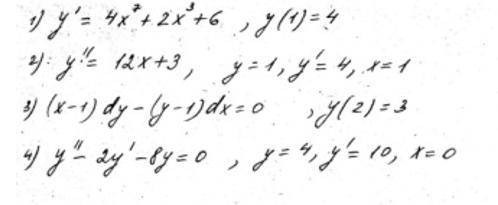 1) y' = 4x⁷ + 2x³ + 6 , y(1) = 4
2) y'' = 12x + 3 , y = 1, y' = 4, x = 1
3) (x-1) dy - (y-1) dx = 0 , y(2) = 3
4) y'' - 2y' - 8y = 0 , y = 4, y' = 10, x = 0